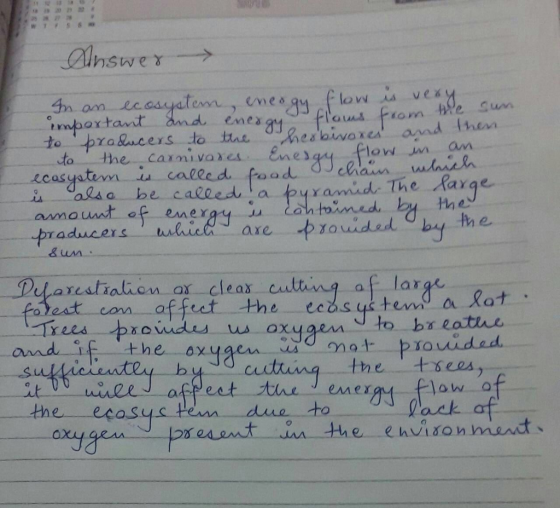 Answer →
In an ecosystem, energy flow is very
important and energy flows from the sun
to producers to the herbivores and then
to the carnivores. Energy flow in an
ecosystem is called food chain which
is also be called a pyramid. The large
amount of energy is contained by the
producers which are provided by the
sun.
Deforestration or clear cutting of large
forest can affect the ecosystem a lot.
Trees proindes us oxygen to breathe
and if the oxygen is not provided
sufficiently by cutting the trees,
it will affect the energy flow of
the ecosystem due to lack of
oxygen present in the environment.